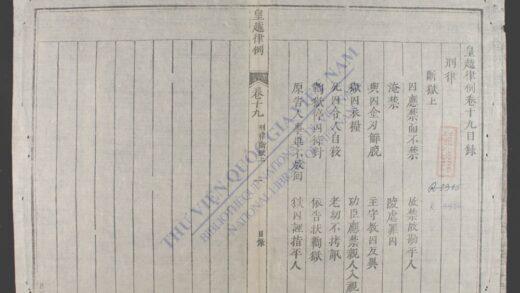 皇越律例卷十九目錄
刑律
斷獄上
囚應禁而不禁 故禁故勘平人
淹禁 陵虐罪囚
與囚金刃解脫 主守教囚反異
獄囚衣糧 功臣應禁親人入視
死囚令人自殺 老幼不拷訊
鞫獄停囚待對 依告狀鞫獄
原告人事畢不放回 獄囚誣指平人
皇越律例 卷十九 刑律斷獄上 一 目錄
THƯ VIỆN QUỐC GIA VIỆT NAM
NATIONAL LIBRARY